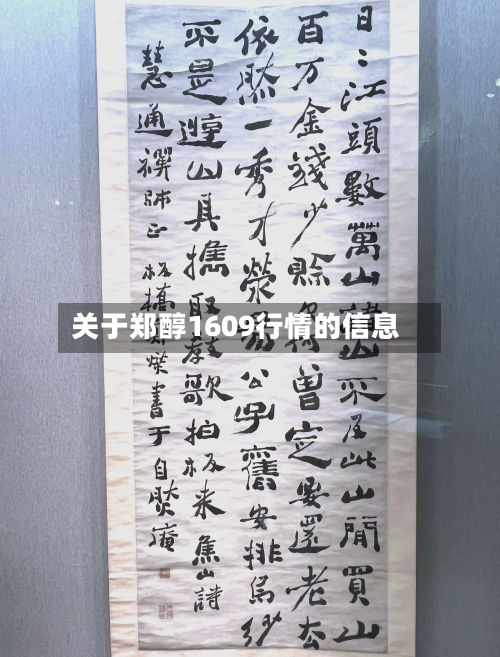 日〻江頭數萬山山不及此山閒買山
百万金錢少賒何曾㝎要還老去
依然一秀才滎公子舊安排烏紗
不是遊山具攜取歌拍板来焦山詩
慧通禪師正 板橋鄭燮書于自然庵
关于郑醇1609行情的信息